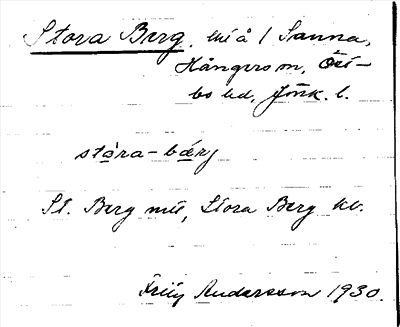 Stora Berg, på / Sanna,
Hångers sn, Öst-
bo hd, Jönk. l.
stora-bærj
St. Berg mtl, Stora Berg kv.
Andersson 1930.